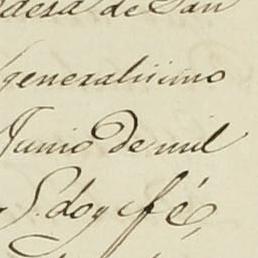 de San
generalisimo
Junio De mil
S. doy fé,